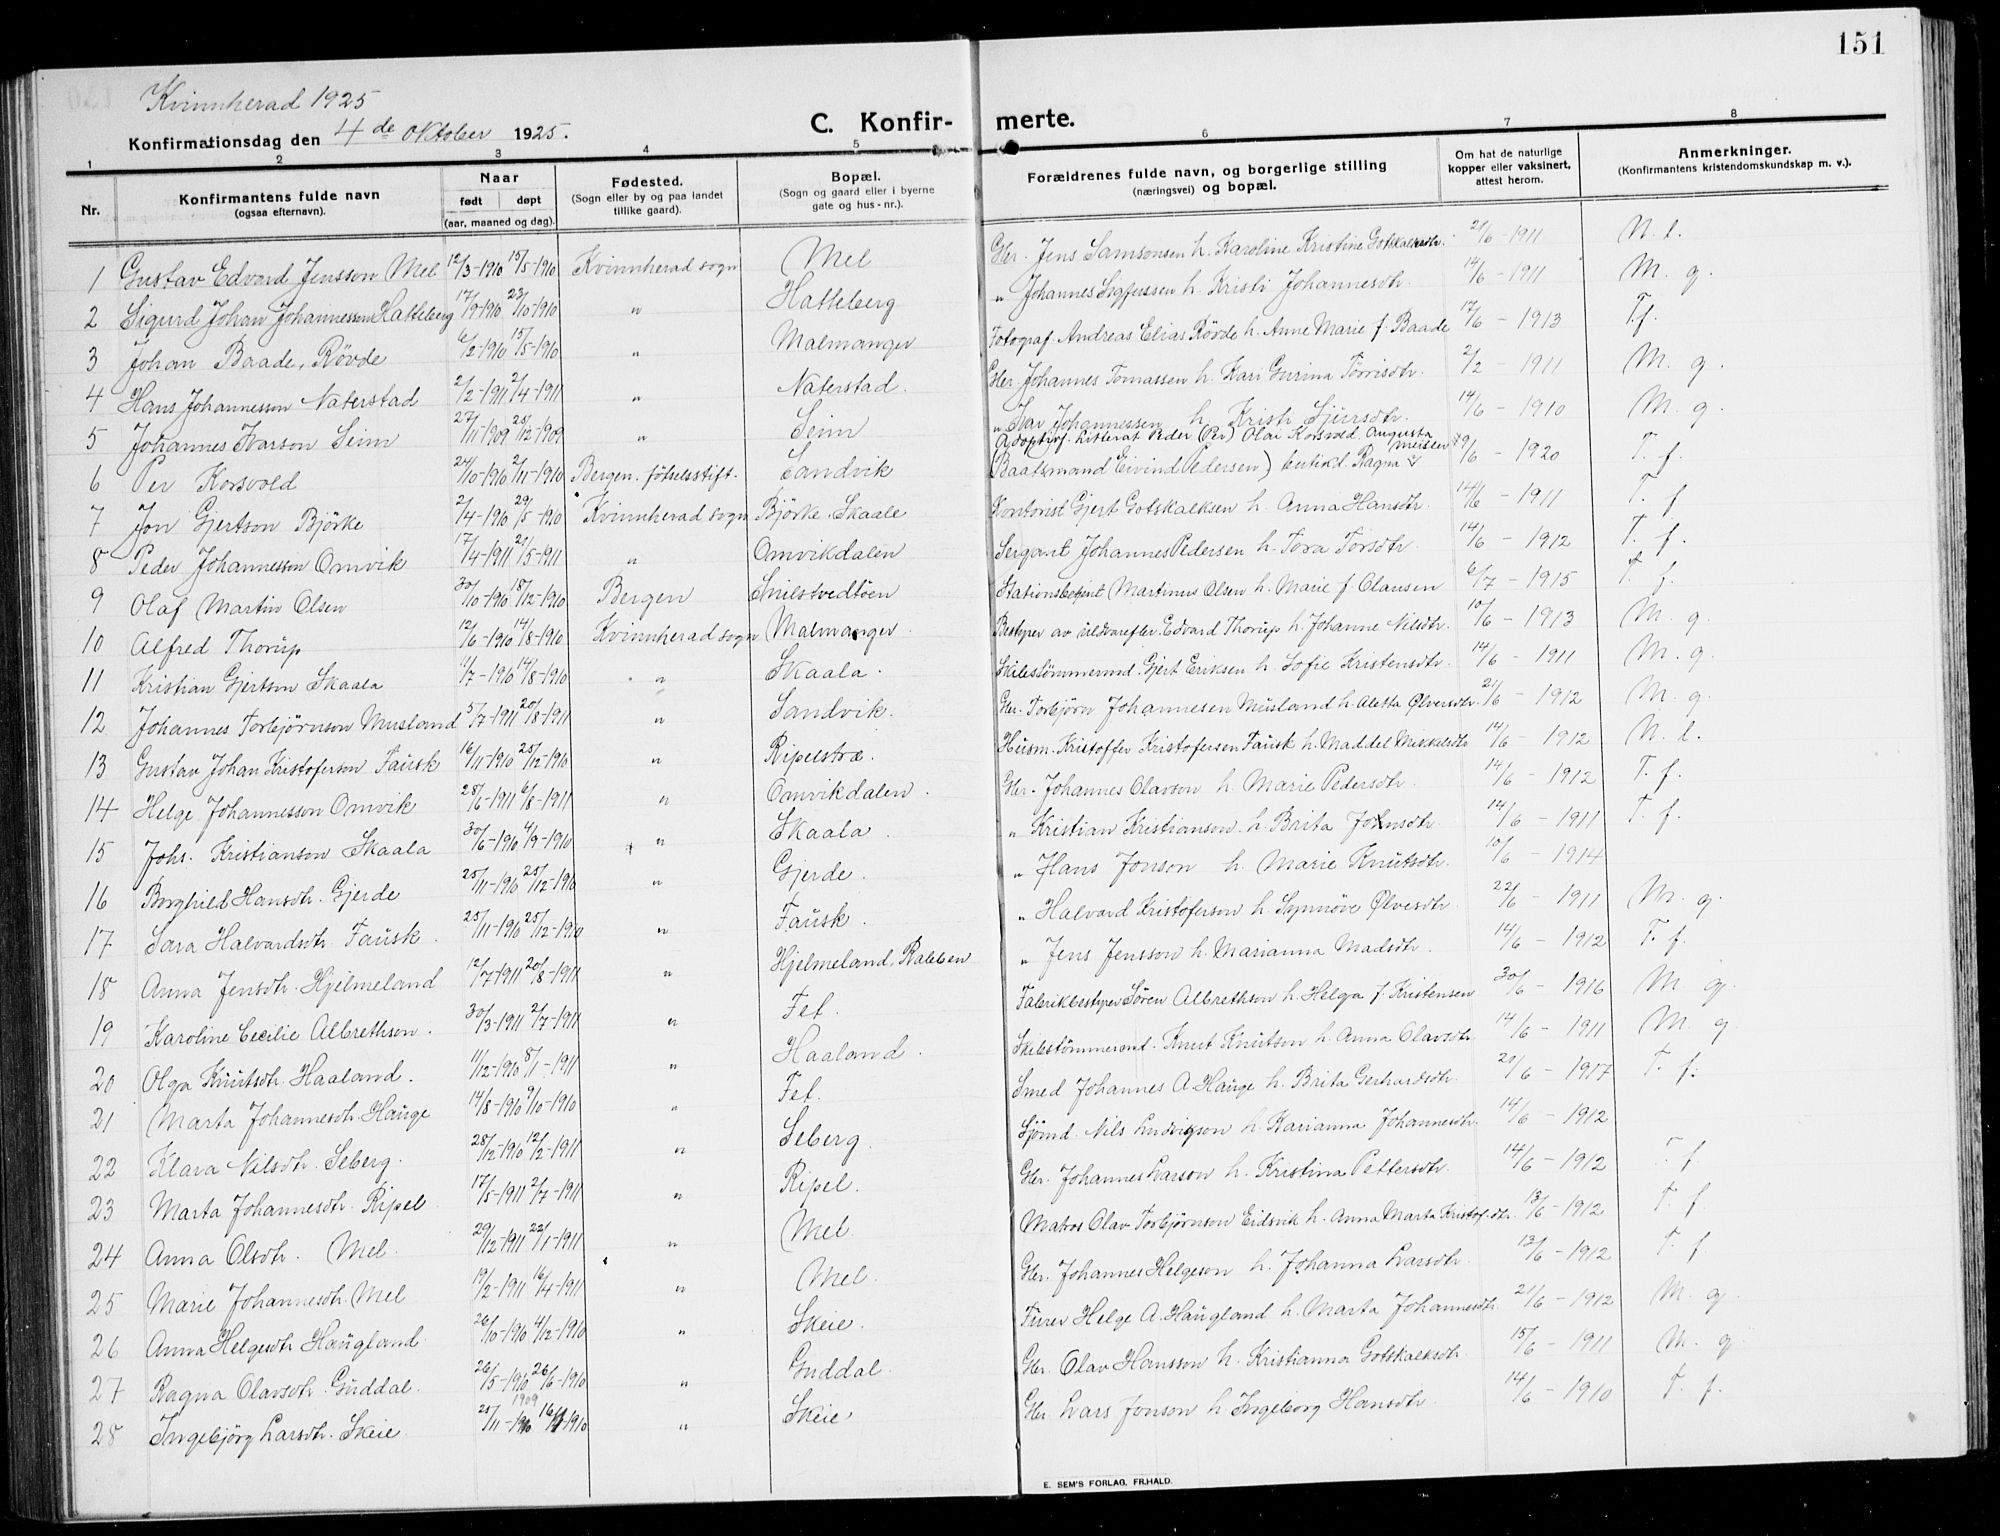 151
Kvinnherad 1925
Konfirmationsdag den 4de Oktober 1925.
C. Konfir- merte.
1 2 3 4 5 6 7 8
Nr.
Konfirmantens fulde navn
(ogsaa efternavn).
Naar
født døpt
(aar, maaned og dag).
Fødested.
(Sogn eller by og paa landet
tillike gaard).
Bopæl.
(Sogn og gaard eller i byerne
gate og hus-nr.).
Forældrenes fulde navn, og borgerlige stilling
(næringsvei) og bopæl.
Om hat de naturlige
kopper eller vaksinert,
attest herom.
Anmerkninger.
(Konfirmantens kristendomskundskap m. v.).
1 Gustav Edvard Jensson Mel 12/3-1910 15/5-1910 Kvinnherad sogn Mel Gbr. Jens Samsonsen h. Karoline Kristine Gotskalksdtr. 21/6-1911 N. l.
2 Sigurd Johan Johannessen Hatteberg 17/9-1910 23/10-1910 " Hatteberg " Johannes Sigfussen h. Kristi Johannesdtr. 14/6-1911 M. g.
3 Johan Baade, Rövde 6/2-1910 15/5-1910 " Malmanger Fotograf Andreas Elias Rövde h. Anne Marie f. Baade 17/6-1913 T. f.
4 Hans Johannesson Naterstad 2/2-1911 2/4-1911 " Naterstad. Gbr. Johannes Tomassen h. Kari Gurina Törrisdtr. 2/2-1911 M. g.
5 Johannes Ivarson Seim 27/11-1909 25/12-1909 " Seim " Ivar Johannessen h. Kristi Sjursdtr. 14/6-1910 M. g.
6 Per Korsvold 24/10-1910 2/11-1910 Bergen. fötselsstift. Sandvik Adoptivf. Litterat Peder (Per) Olai Korsvold, Augusta
(Baatsmand Eivind Pedersen) Ragna 9/6-1920 T. f.
7 Jon Gjertson Björke 2/4-1910 29/5-1910 Kvinnherad sogn Björke, Skaale Kontorist Gjert Gotskalksen h. Anna Hansdtr. 14/6-1911 T. f
8 Peder Johannesson Omvik 17/4-1911 21/5-1911 " Omvikdalen Sergant Johannes Pedersen h. Tora Torsdtr. 14/6-1912 T. f.
9 Olaf Martin Olsen 30/10-1910 18/12-1910 Bergen Stationsbetjent Martinus Olsen h. Marie f. Olausen 6/7-1915 T. f.
10 Alfred Thorup 12/6-1910 14/8-1910 Kvinnherad sogn Malmanger. Bestyrer av uldvarefbr. Edvard Thorup h. Johanne Nilsdtr. 10/6-1913 M. g.
11 Kristian Gjertson Skaala 11/7-1910 14/8-1910 " Skaala. Skibstömmermd. Gjert Eriksen h. Sofie Kristensdtr. 14/6-1911 M. g.
12 Johannes Torbjörnson Musland 5/7-1911 20/8-1911 " Sandvik. Gbr. Torbjörn Johannesen Musland h. Aletta Ølversdtr. 21/6-1912 M. g.
13 Gustav Johan Kristoferson Fausk 16/11-1910 25/12-1910 " Ripelstræ. Husm. Kristoffer Kristofersen Fausk h. Maddel Mikkelsdtr 14/6-1912 N. l.
14 Helge Johannesson Omvik 28/6-1911 6/8-1911 " Omvikdalen. Gbr. Johannes Olavson h. Marie Pedersdtr. 14/6-1912 T. f.
15 Johs. Kristianson Skaala 30/6-1910 4/9-1910 " Skaala. " Kristian Kristianson h. Brita Johnsdtr. 14/6-1911 T. f.
16 Borghild Hansdtr. Gjerde 25/11-1910 25/12-1910 " Gjerde. " Hans Jonson h. Marie Knutsdtr. 10/6-1914
17 Sara Halvardsdtr. Fausk. 25/11-1910 25/12-1910 " Fausk. " Halvard Kristoferson h. Synnöve Ølvesdtr. 22/6-1911 M. g.
18 Anna Jensdtr. Hjelmeland 12/7-1911 20/8-1911 " Hjelmeland, " Jens Jensson h. Marianna Madsdtr. 14/6-1912 T. f.
19 Karoline Cecilie Albrethson. 30/3-1911 2/7-1911 " Fet. Fabrikbestyrer Sören Albrethson h. Helga f. Kristensen 30/6-1916 M. g.
20 Olga Knutsdtr. Haaland. 11/12-1910 8/1-1911 " Haaland. Skibstömmermd. Knut Knutson h. Anna Olavsdtr. 14/6-1911 M. g
21 Marta Johannesdtr. Hauge 14/8-1910 9/10-1910 " Fet. Smed Johannes A. Hauge h. Brita Gerhardsdtr. 21/6-1917 T. f.
22 Klara Nilsdtr. Seberg. 28/12-1910 12/2-1911 " Seberg. Sjömd. Nils Ludvigson h. Karianna Johannesdtr. 14/6-1912
23 Marta Johannesdtr. Ripel. 17/5-1911 2/7-1911 " Ripel. Gbr. Johannes Larson h. Kristina Pettersdtr. 14/6-1912 T. f
24 Anna Olsdtr. Mel. 29/12-1911 22/1-1911 " Mel. Matros Olav Torbjörnson Eidsvik h. Anna Marta Kristof.dtr. 13/6-1912 T. f
25 Marie Johannesdtr. Mel 19/2-1911 16/4-1911 " Mel. Gbr. Johannes Helgeson h. Johanna Larsdtr. 13/6-1912 T. f
26 Anna Helgesdtr Haugland. 26/10-1910 4/12-1910 " Skeie. Furer Helge A. Haugland h. Marta Johannesdtr. 21/6-1912 M. g.
27 Ragna Olavsdtr. Guddal. 26/5-1910 26/6-1910 " Guddal. Gbr. Olav Hansson h. Kristianna Gotskalksdtr. 15/6-1911 M. g
28 Ingebjörg Larsdtr. Skeie. 25/11-1909 16/1-1910 " Skeie Gbr. Lars Jonson h. Ingeborg Hansdtr. 14/6-1910 T. f.
E. SEM'S FORLAG, FR.HALD.